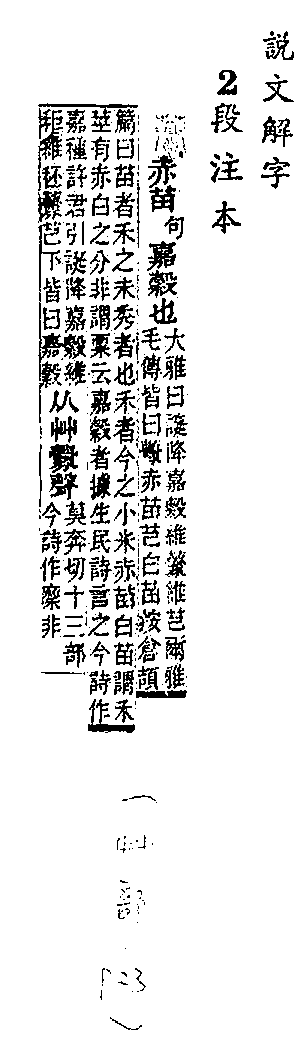 説文解字
2段注本
赤苗句嘉穀也
大雅曰誕降嘉穀維虋維芑爾雅
毛傳皆曰虋赤苗芑白苗按倉頡
篇曰苗者禾之未秀者也禾者今之小米赤苗白苗謂禾
莖有赤白之分非謂粟云嘉穀者據生民詩言之今詩作
嘉種許君引誕降嘉穀維
秬維秠虋芑下皆曰嘉穀
从艸釁聲
莫奔切十三部
今詩作穈非
(艸部 P23)